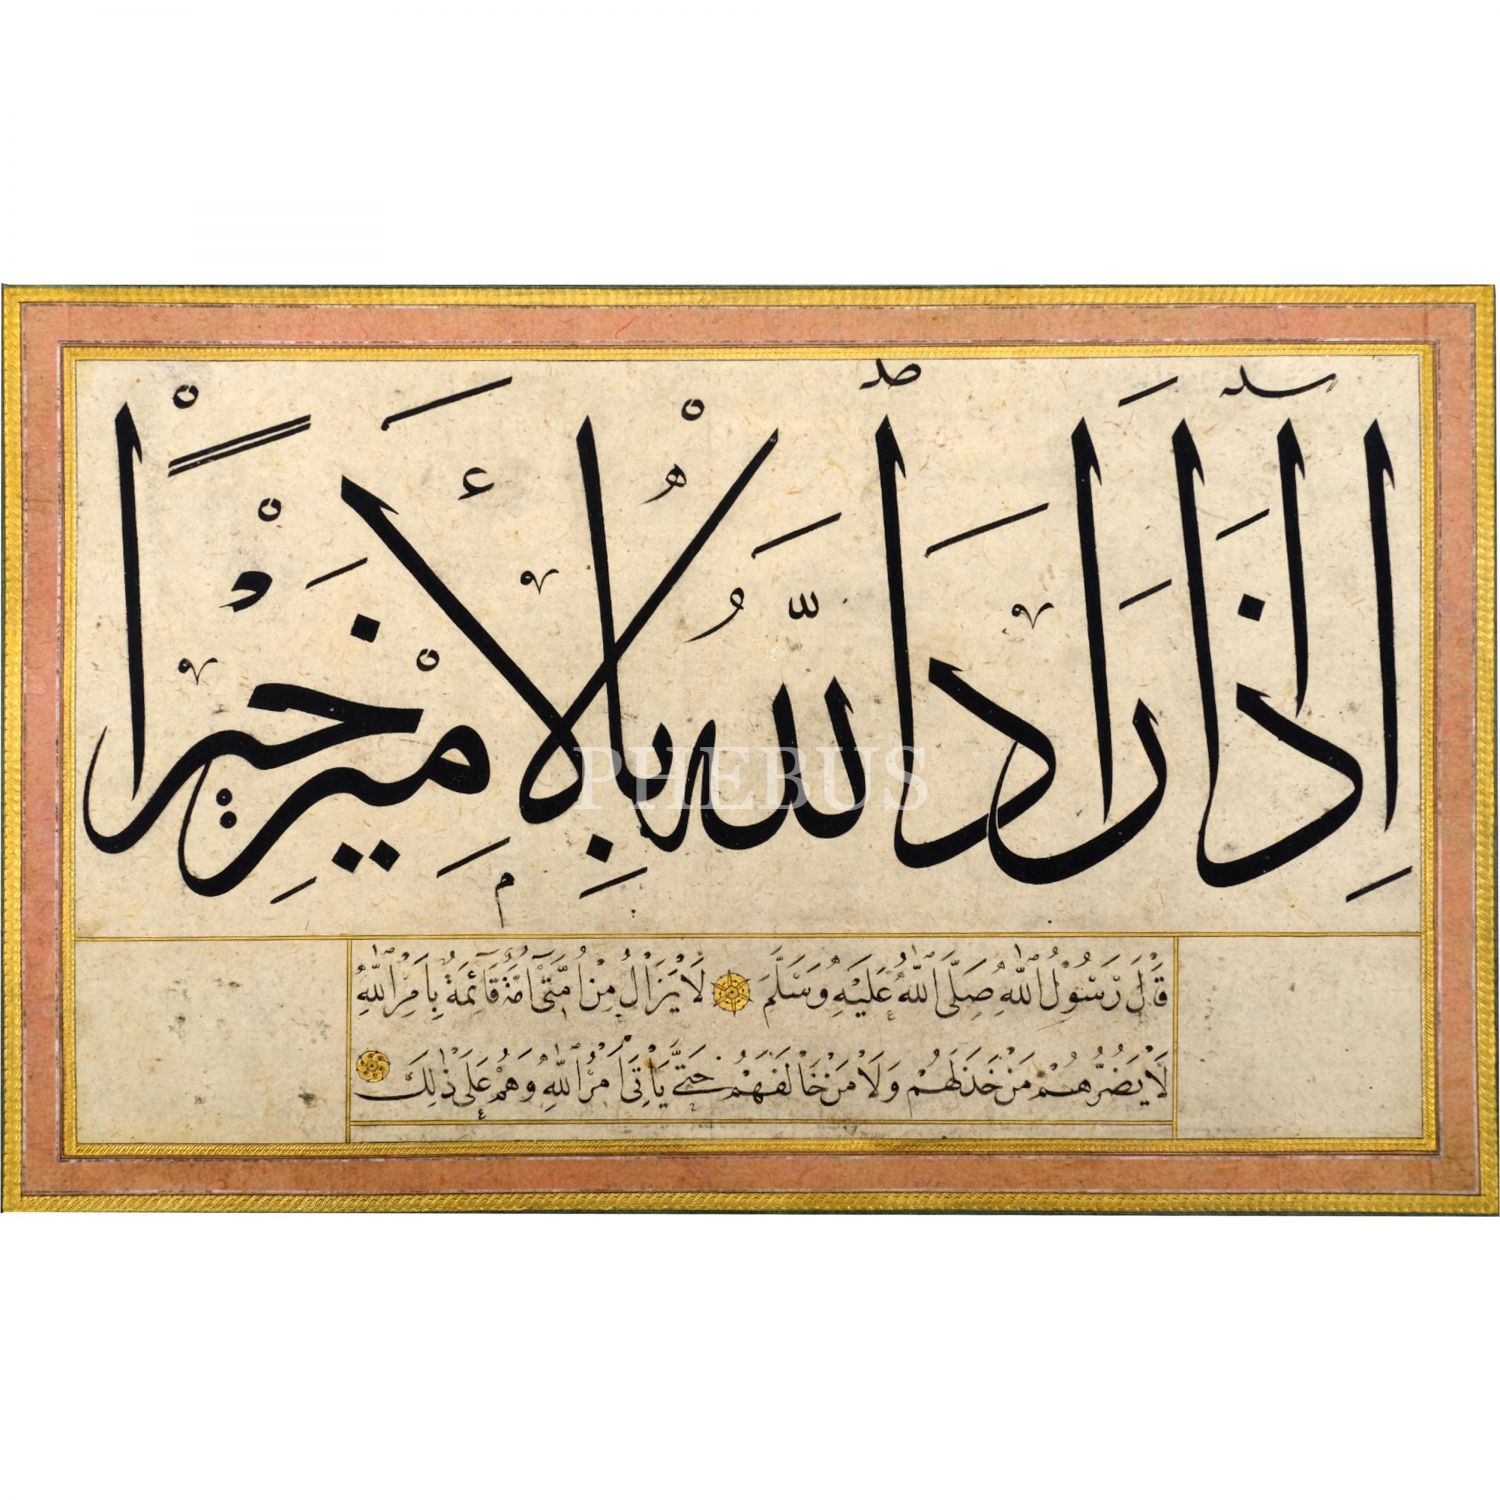 إِذَا أَرَادَ اللَّهُ بِالْأَمِيرِ خَيْرًا
PHEBUS
قَالَ رَسُولُ اللَّهِ صَلَّى اللَّهُ عَلَيْهِ وَسَلَّمَ لَا يَزَالُ مِنْ أُمَّتِي أُمَّةٌ قَائِمَةٌ بِأَمْرِ اللَّهِ
لَا يَضُرُّهُمْ مَنْ خَذَلَهُمْ وَلَا مَنْ خَالَفَهُمْ حَتَّى يَأْتِيَ أَمْرُ اللَّهِ وَهُمْ عَلَى ذَلِكَ